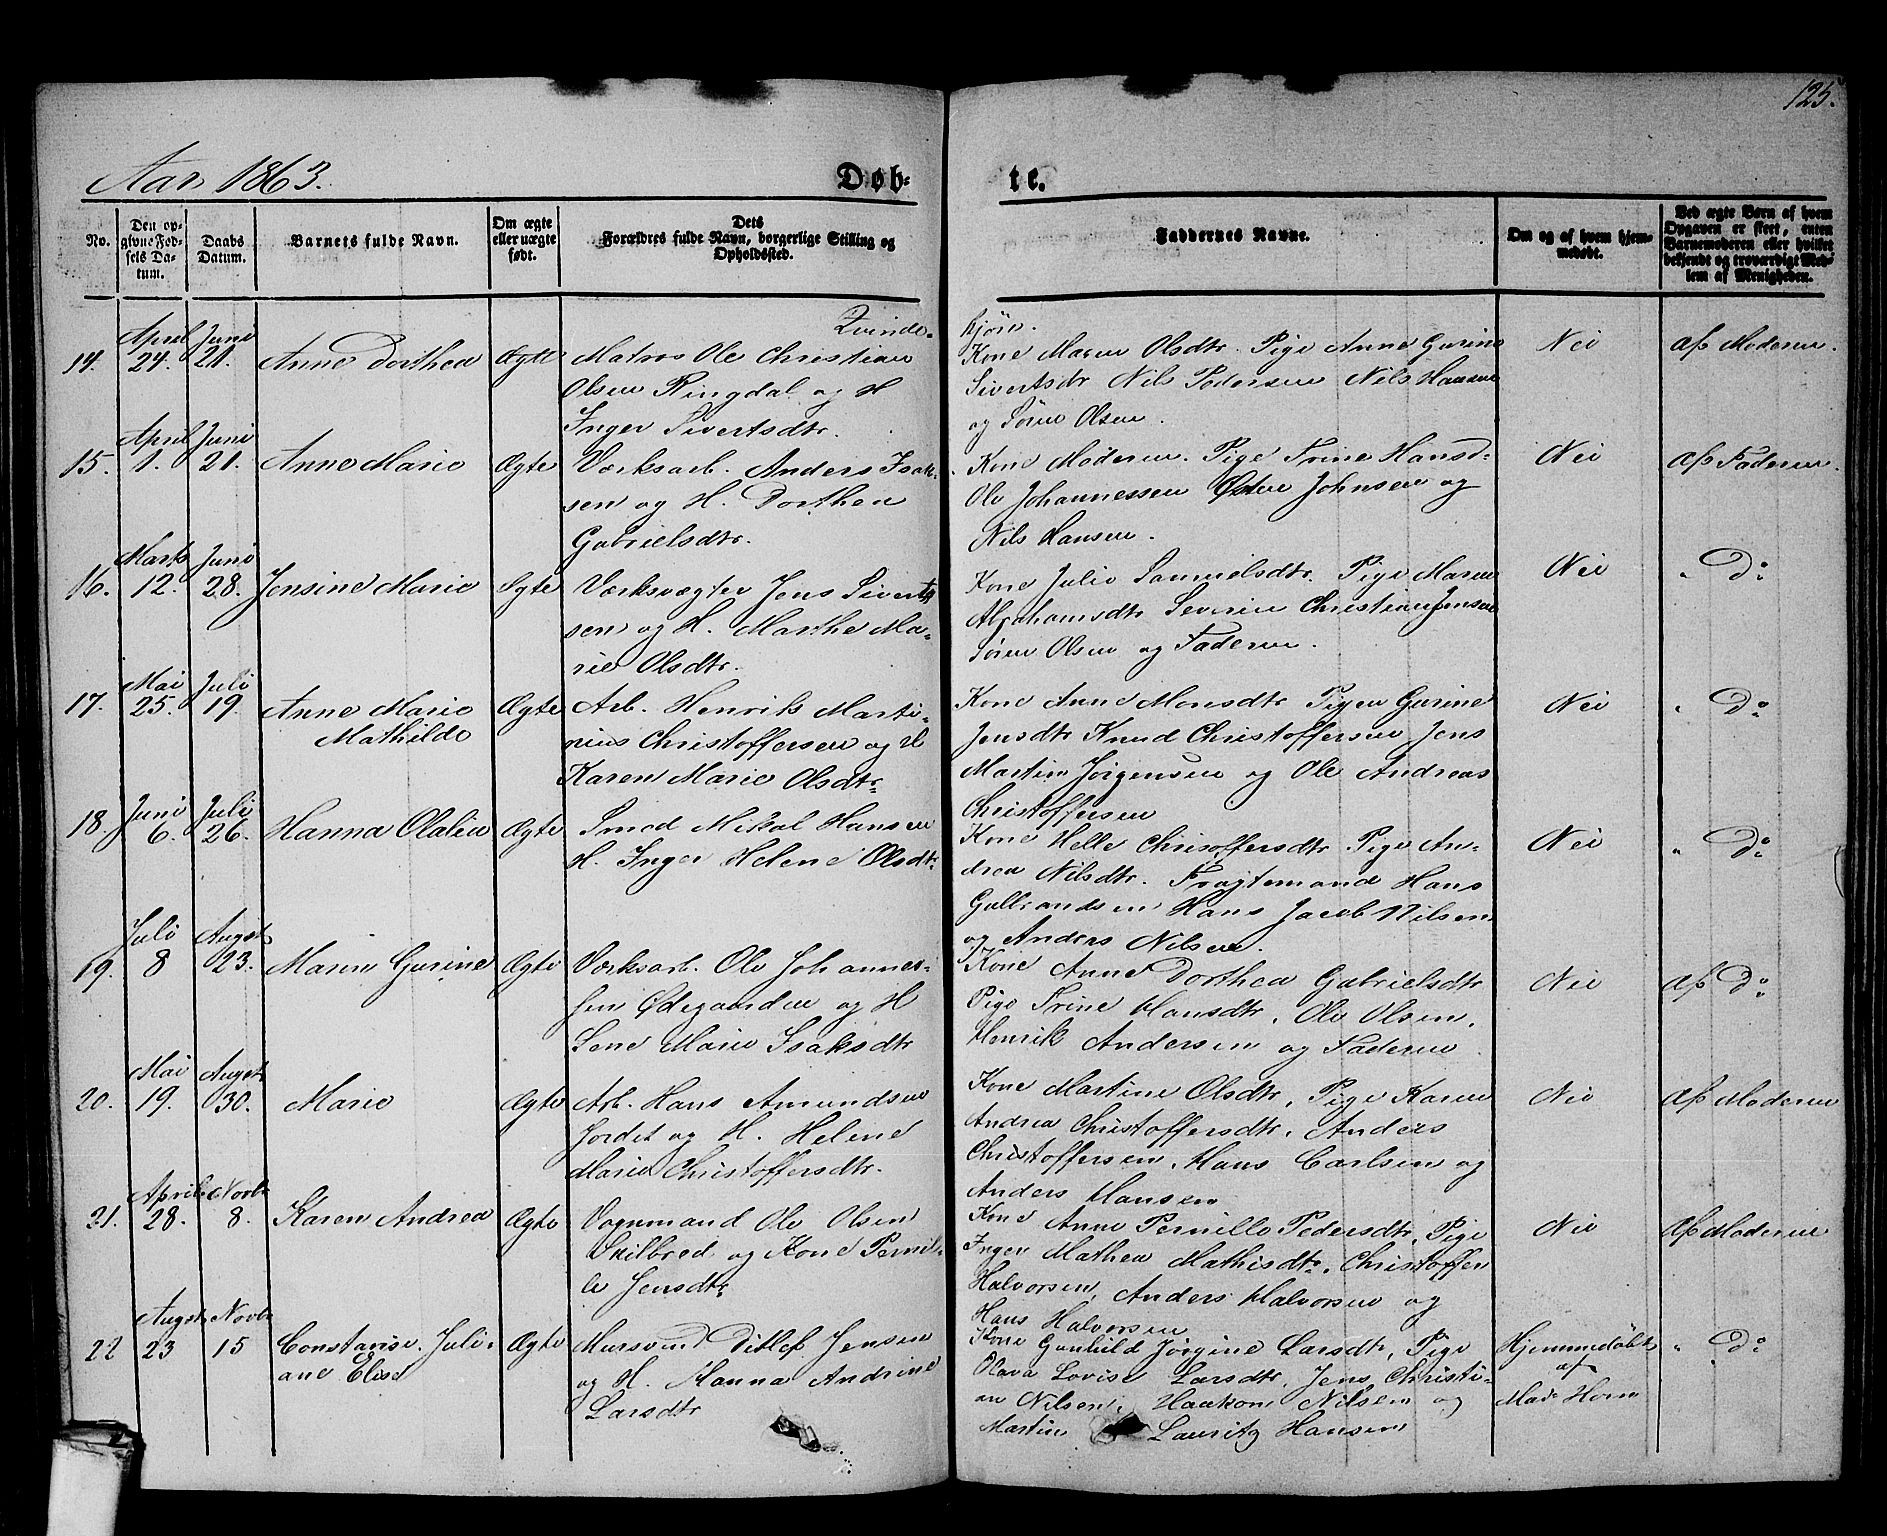 125.
Aar 1863.
Døb-
te.
No.
Den op-
givne Fød-
sels Da-
tum.
Daabs
Datum.
Barnets fulde Navn.
Om ægte
eller uægte
født.
Dets
Forældres fulde Navn, borgerlige Stilling og
Opholdssted.
Faddernes Navne.
Om og af hvem hjem-
medøbt.
Ved ægte Børn af hvem
Opgaven er skeet, enten
Barnemoderen eller hvilket
bekjendt og troværdigt Med-
lem af Menigheden.
Qvinde-
kjøn.
14.
April
24.
Juni
21.
Anne Dorthea
Ægte
Matros Ole Christian
Olsen Ringdal og H
Inger Sivertsdtr.
Kone Maren Olsdtr. Pige Anne Gurine
Sivertsdtr Nils Pedersen Nils Hansen
og Sören Olsen.
Nei
af Moderen.
15.
April
1.
Juni
21.
Anne Marie
Ægte
Værksarb. Anders Isak-
sen og H. Dorthea
Gabrielsdtr.
Kone Moderen. Pige Trine Hansd-
Ole Johannessen Johnsen og
Nils Hansen.
Nei
af Faderen.
16.
Marts
12.
Juni
28.
Jensine Marie
Ægte
Værksvægter Jens Siverts
sen og H. Marthe Ma-
rie Olsdtr.
Kone Julie Samuelsdtr. Pige Maren
Abrahamsdtr Severin Christian Jensen
Sören Olsen og Faderen.
Nei
" Do
17.
Mai
25.
Juli
19.
Anne Marie
Mathilde
Ægte
Arb. Henrik Marti-
nius Christoffersen og H
Karen Marie Olsdtr.
Kone Anne Monsdtr Pigen Gurine
Jensdtr Knud Christoffersen Jens
Martin Jörgensen og Ole Andreas
Christoffersen
Nei
" Do
18.
Juni
6.
Juli
26.
Hanna Olalia
Ægte
Smed Mikal Hansen
H. Inger Helene Olsdtr
Kone Helle Chrisoffersdtr Pige An-
drea Nilsdtr. Fragtemand Hans
Gulbrandsen Hans Jacob Nilsen
og Anders Nilsen.
Nei
" Do
19.
Juli
8
Augst
23.
Maren Gurine
Ægte
Værksarb. Ole Johannes-
sen Ødegaarden og H
Lene Marie Isaksdtr
Kone Anne Dorthea Gabrielsdtr
Pige Trine Hansdtr, Ole Olsen,
Henrik Andersen og Faderen
Nei
af Do
20.
Mai
19.
Augst
30.
Marie
Ægte
Arb. Hans Amundsen
Jordet og H. Helene
Marie Christoffersdtr.
Kone Martine Olsdtr, Pige Karen
Andrea Christoffersdtr, Anders
Christoffersen, Hans Carlsen og
Anders Hansen
Nei
af Moderen
21.
April
28.
Novbr
8.
Karen Andrea
Ægte
Vognmand Ole Olsen
Skilbred og Kone Pernil-
le Jensdtr
Kone Anne Pernille Pedersdtr, Pige
Inger Mathea Mathisdtr, Christoffer
Halvorsen, Anders Halvorsen og
Hans Halvorsen
Nei
af Moderen
22
Augst
23
Novbr
15
Constanse Juli-
ane Elise
Ægte
Mursvend Ditlef Jensen
og H. Hanna Andrine
Larsdtr
Kone Gunhild Jörgine Larsdtr, Pige
Olava Lovise Larsdtr, Jens Christi-
an Nilsen, Haakon Nilsen og
Martin Lauritz Hansen
Hjemmedöbt
af
Mad. Horn
" Do